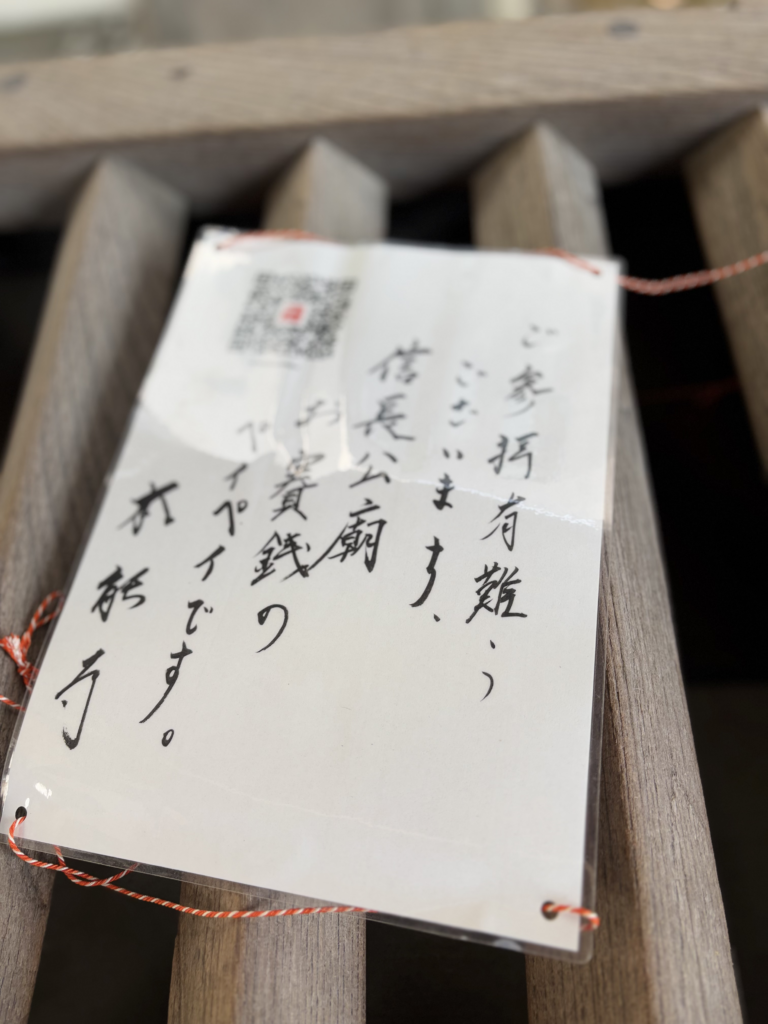 ご参拝有難う
ございます、
信長公廟
お賽銭の
ペイペイです。
本能寺